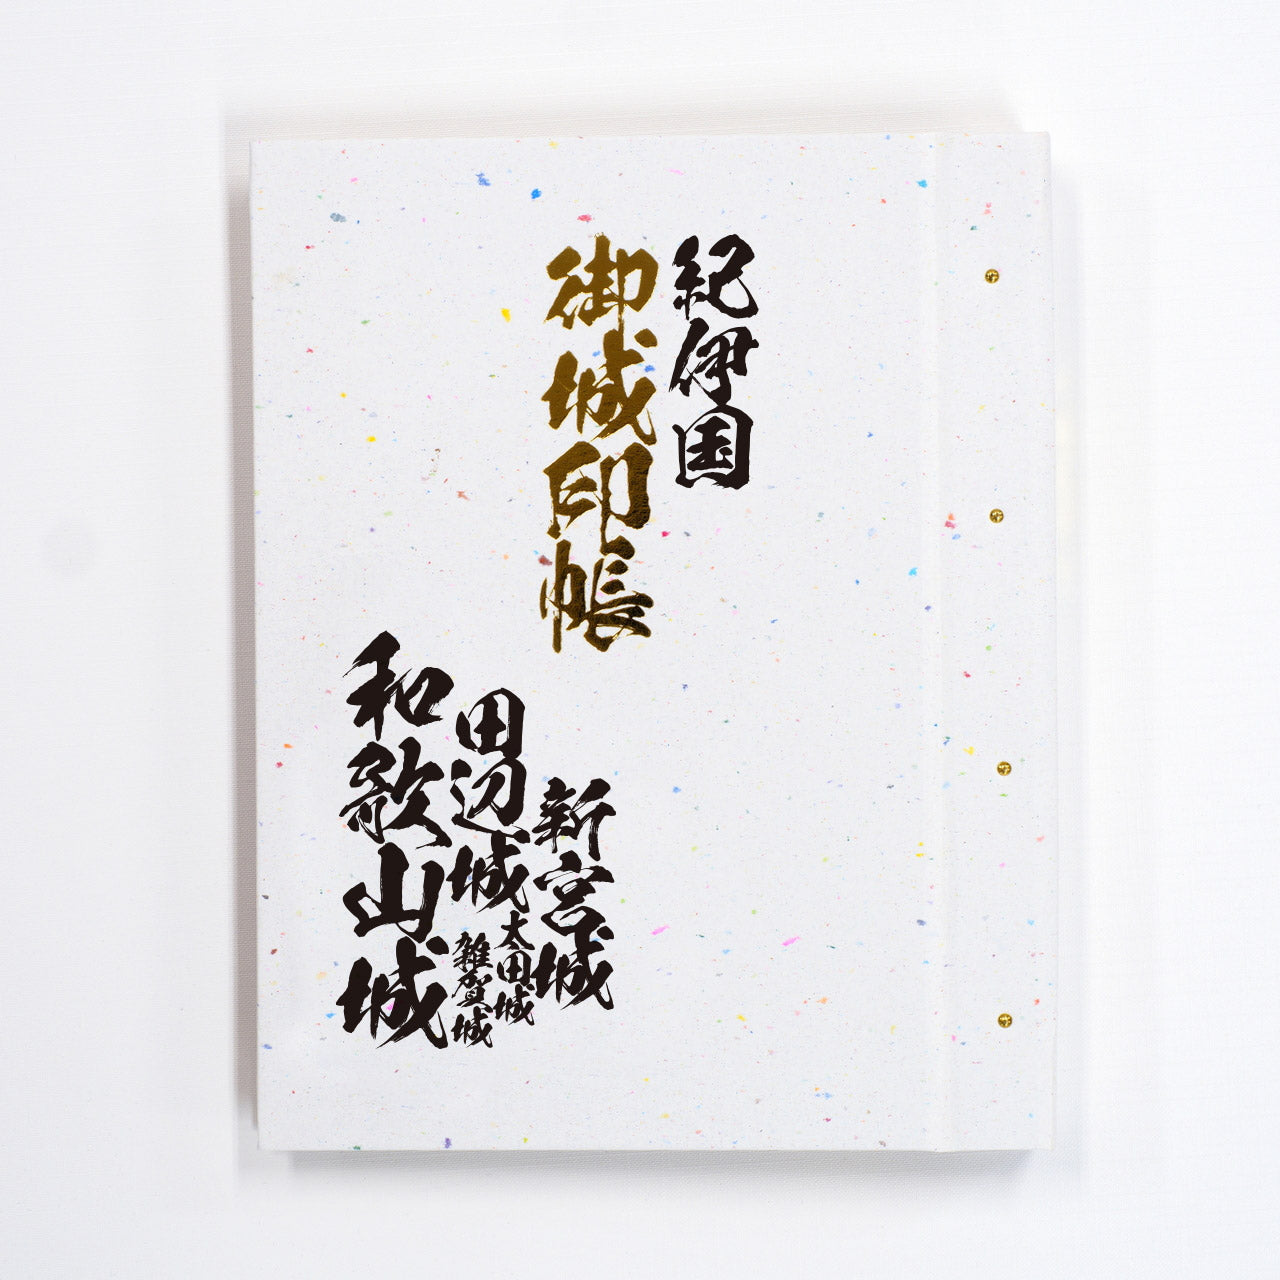 紀伊国
御城印帳
新宮城
太田城
田辺城
雑賀城
和歌山城